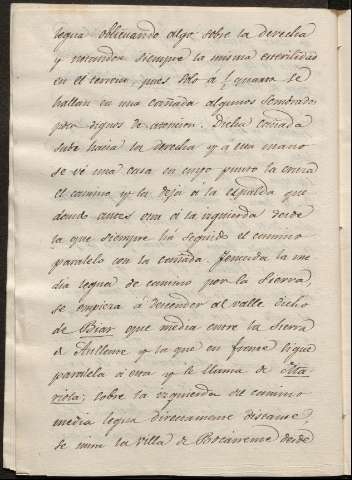 legua oblicuando algo sobre la derecha
y notandose siempre la misma esterilidad
en el terreno, pues solo a ¼ quarto se
hallan en una cañada algunos sembrados
poco dignos de atencion. Dicha cañada
sube hacia la derecha y á esta mano
se vé una casa en cuyo punto la corta
el camino y la deja á la espalda que
donde antes era á la izquierda desde
la que siempre há seguido el camino
paralelo con la cañada. Vencida la me
dia legua de camino por la Sierra,
se empieza á descender al valle dicho
de Biar que media entre la Sierra
de Onteniente y la que en frente sigue
paralela á esta y se llama de Ma-
riola; sobre la izquierda del camino
media legua directamente distante,
se mira la Villa de Bocairente desde